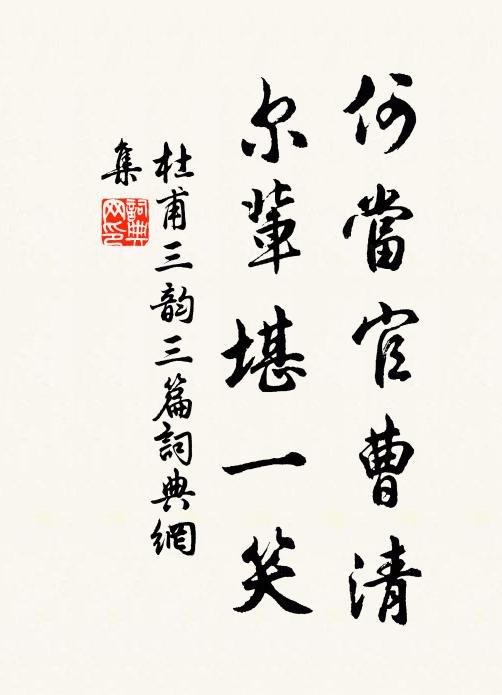 何當官曹清
尔輩堪一笑
杜甫三韵三篇詞典網
集
詞典网印